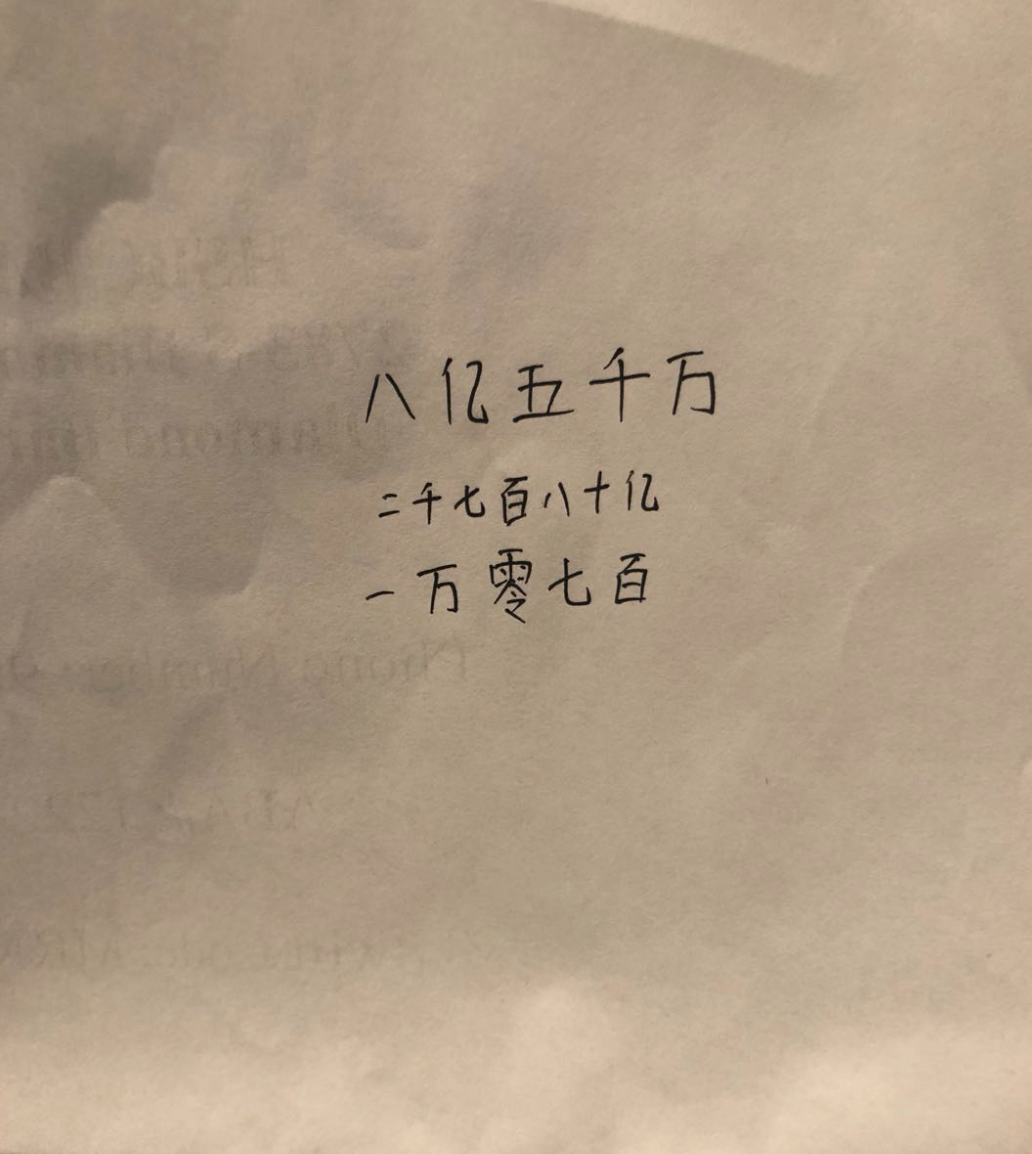 八亿五千万
二千七百八十亿
一万零七百